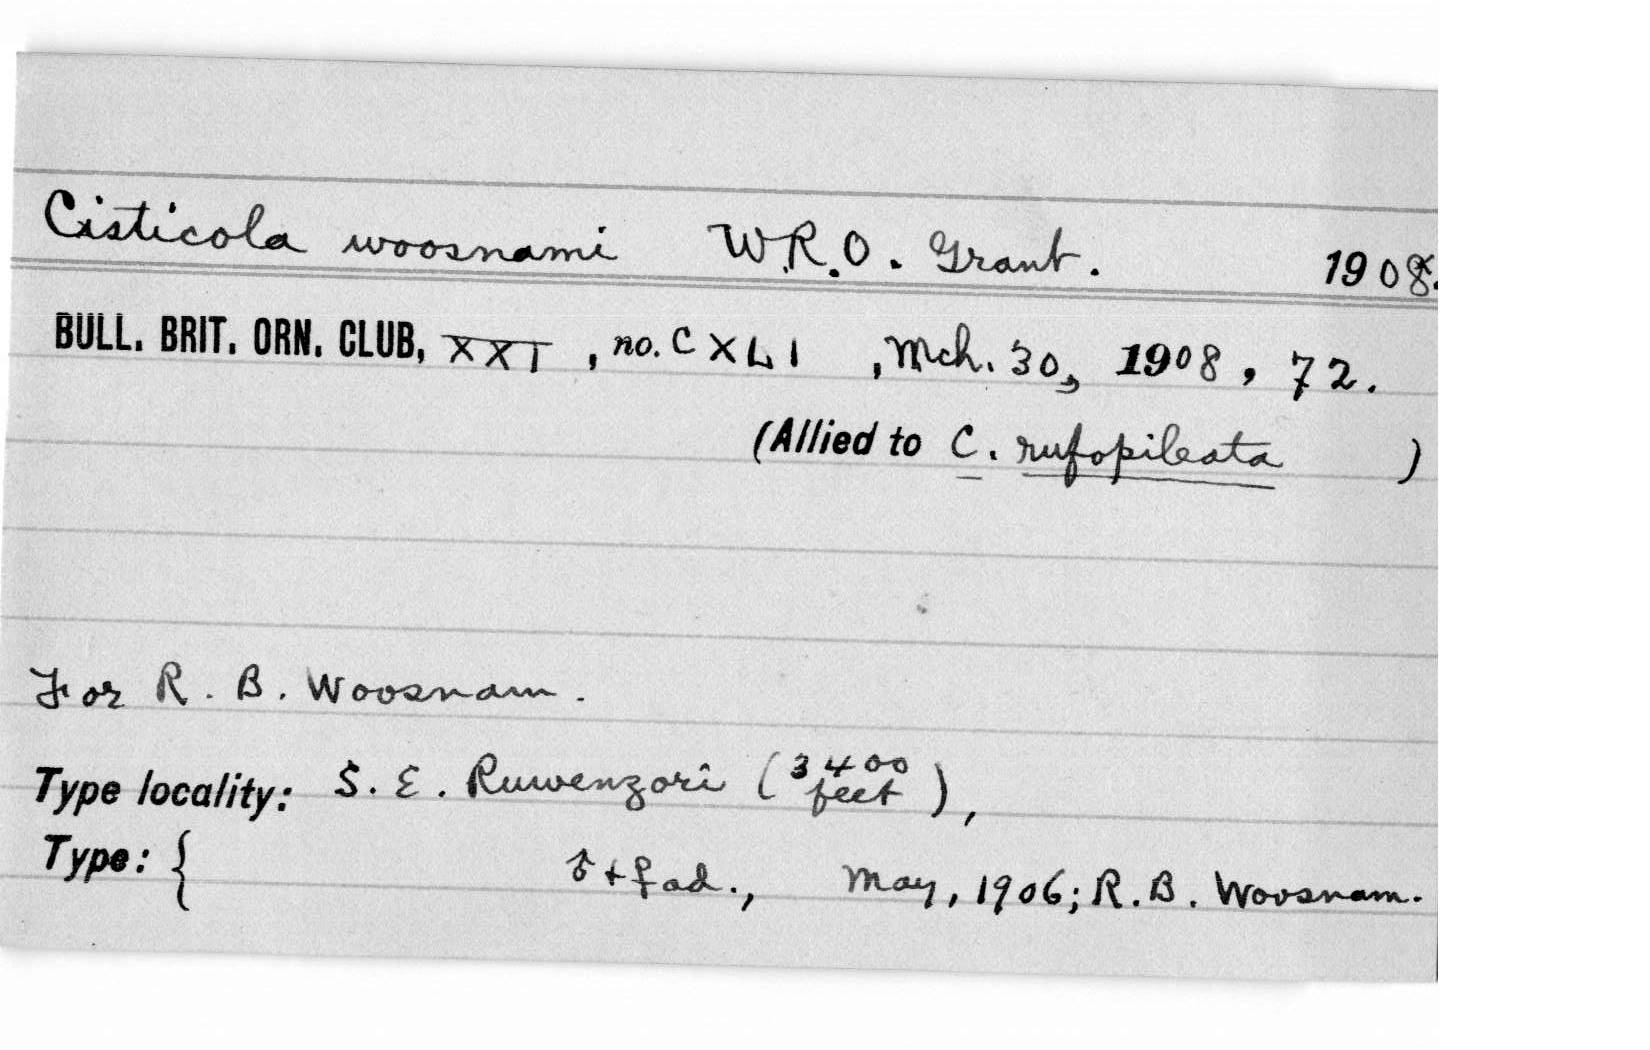 Cisticola woosnami W.R.O. Grant. 1908.
BULL. BRIT. ORN. CLUB, XXI, no. CXLI, Mch. 30, 1908, 72.
(Allied to C. rufopileata )
For R. B. Woosnam.
Type locality: S. E. Ruwenzori (3400 feet),
Type: { ♂ + ♀ ad., May, 1906; R. B. Woosnam.